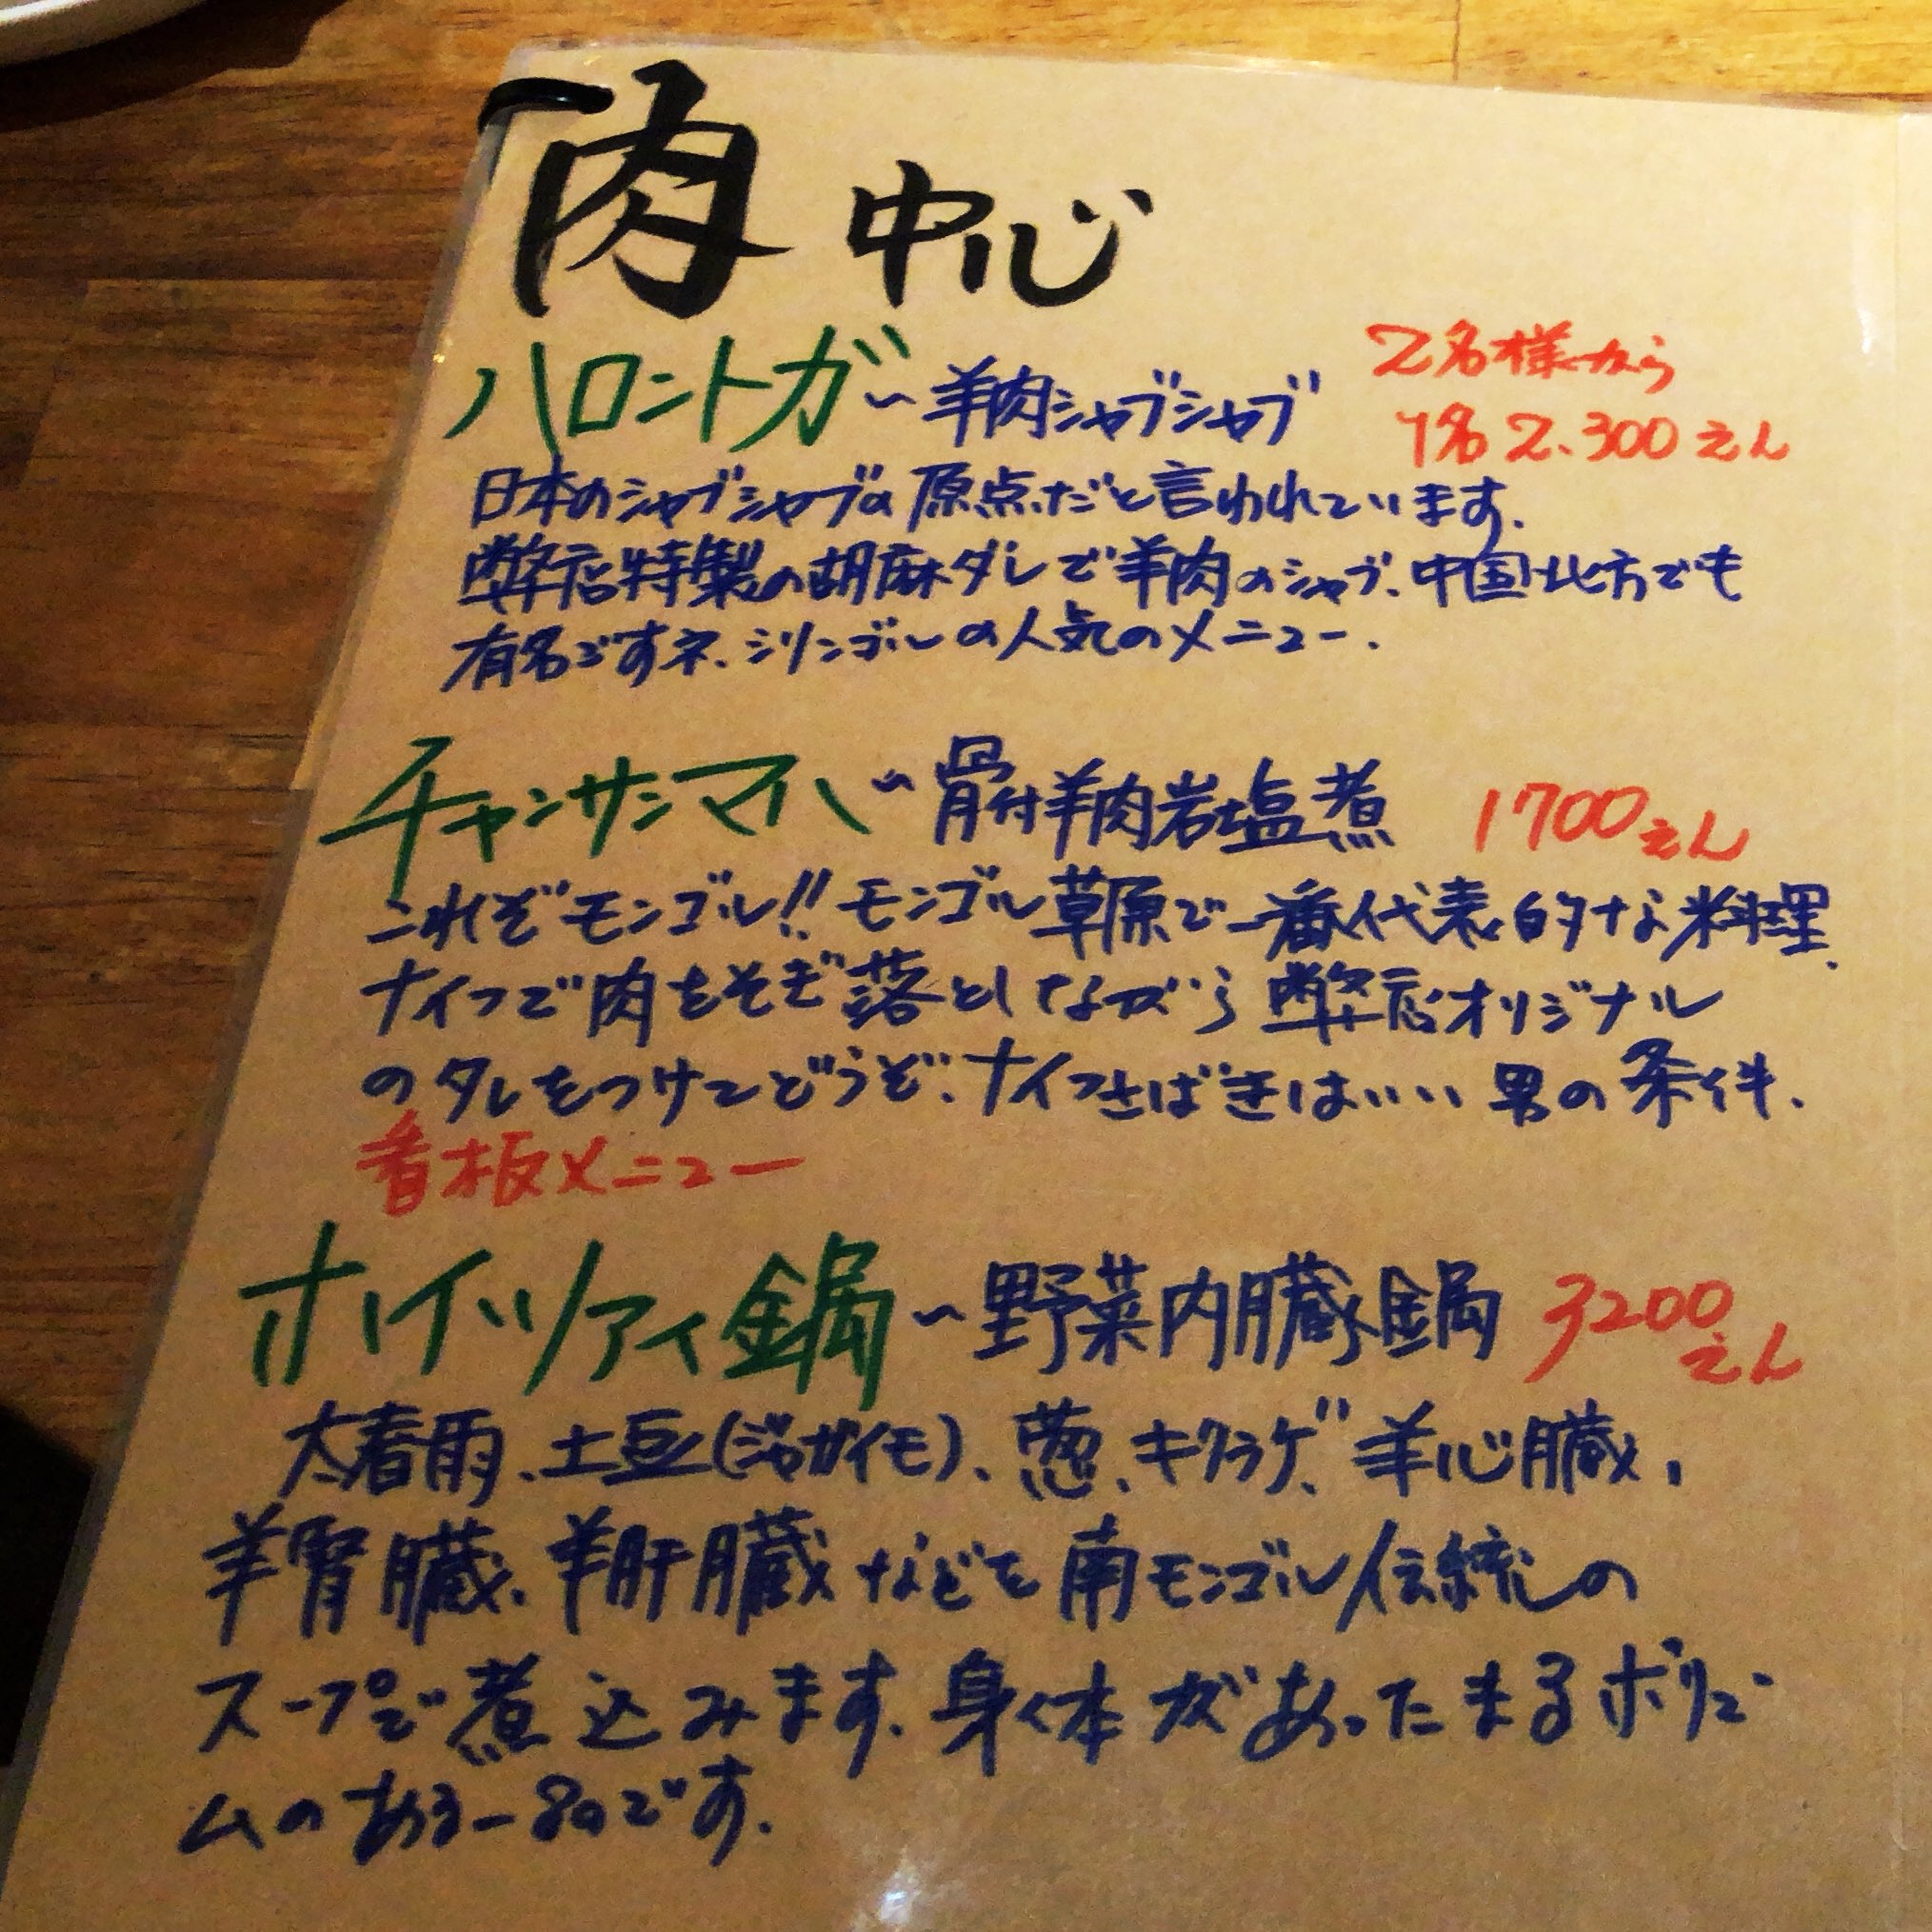 肉中心
ハロントガ〜羊肉シャブシャブ 2名様から
1名2.300えん
日本のシャブシャブの原点だと言われています.
弊店特製の胡麻ダレで羊肉のシャブ、中国北方でも
有名ですネ、シリンゴルの人気のメニュー.
チャンサンマハ〜骨付羊肉岩塩煮 1700えん
これぞモンゴル!!モンゴル草原で一番代表的な料理、
ナイフで肉をそぎ落としながら弊店オリジナル
のタレをつけてどうぞ、ナイフさばきはいい男の条件、
看板メニュー
ホイツァイ鍋〜野菜内臓鍋 3200えん
太春雨、土豆(ジャガイモ)、葱、キクラゲ、羊心臓、
羊腎臓、羊肝臓などを南モンゴル伝統の
スープで煮込みます、身体があったまるボリュー
ムのある一品です.